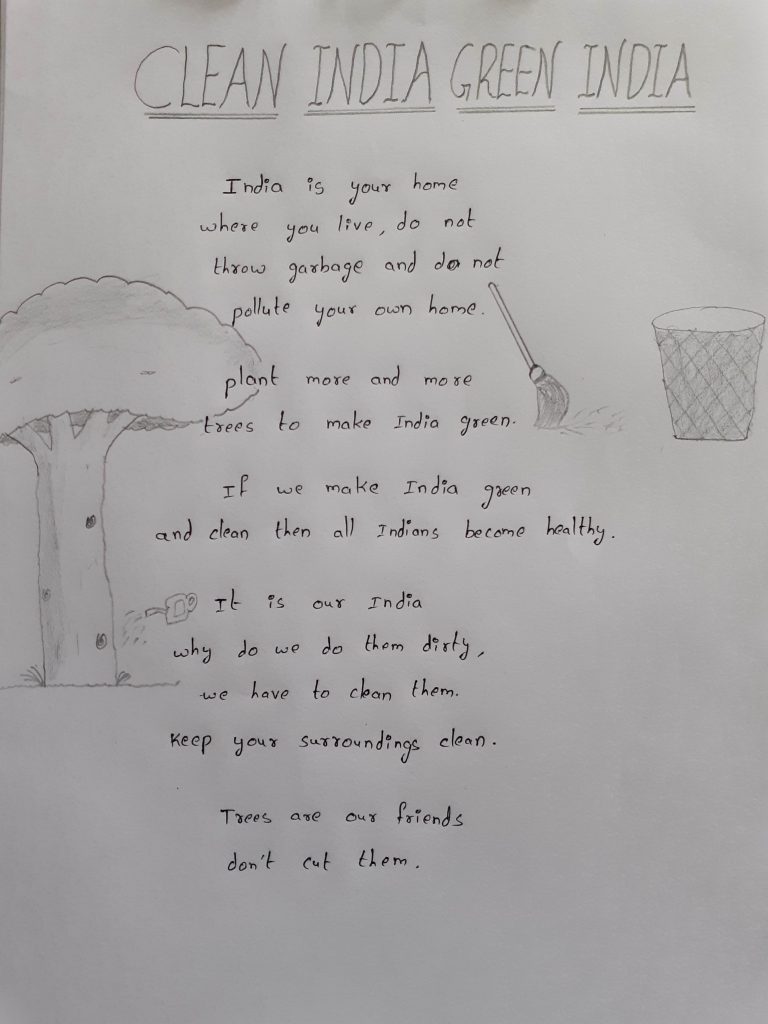 CLEAN INDIA GREEN INDIA
India is your home
where you live, do not
throw garbage and do not
pollute your own home.
plant more and more
trees to make India green.
If we make India green
and clean then all Indians become healthy.
It is our India
why do we do them dirty,
we have to clean them.
Keep your surroundings clean.
Trees are our friends
don't cut them.